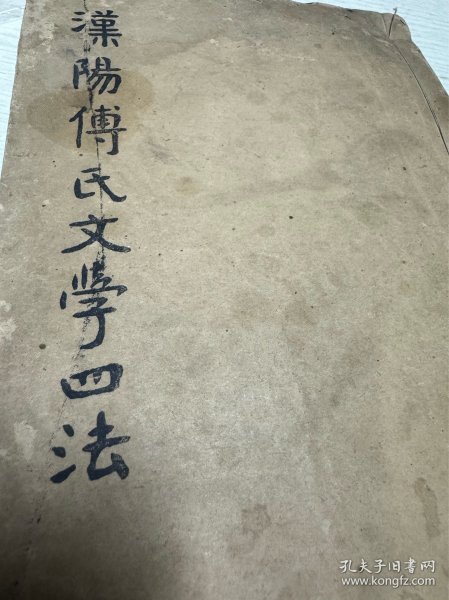 漢陽傅氏文學四法
孔夫子旧书网
www.kongfz.com